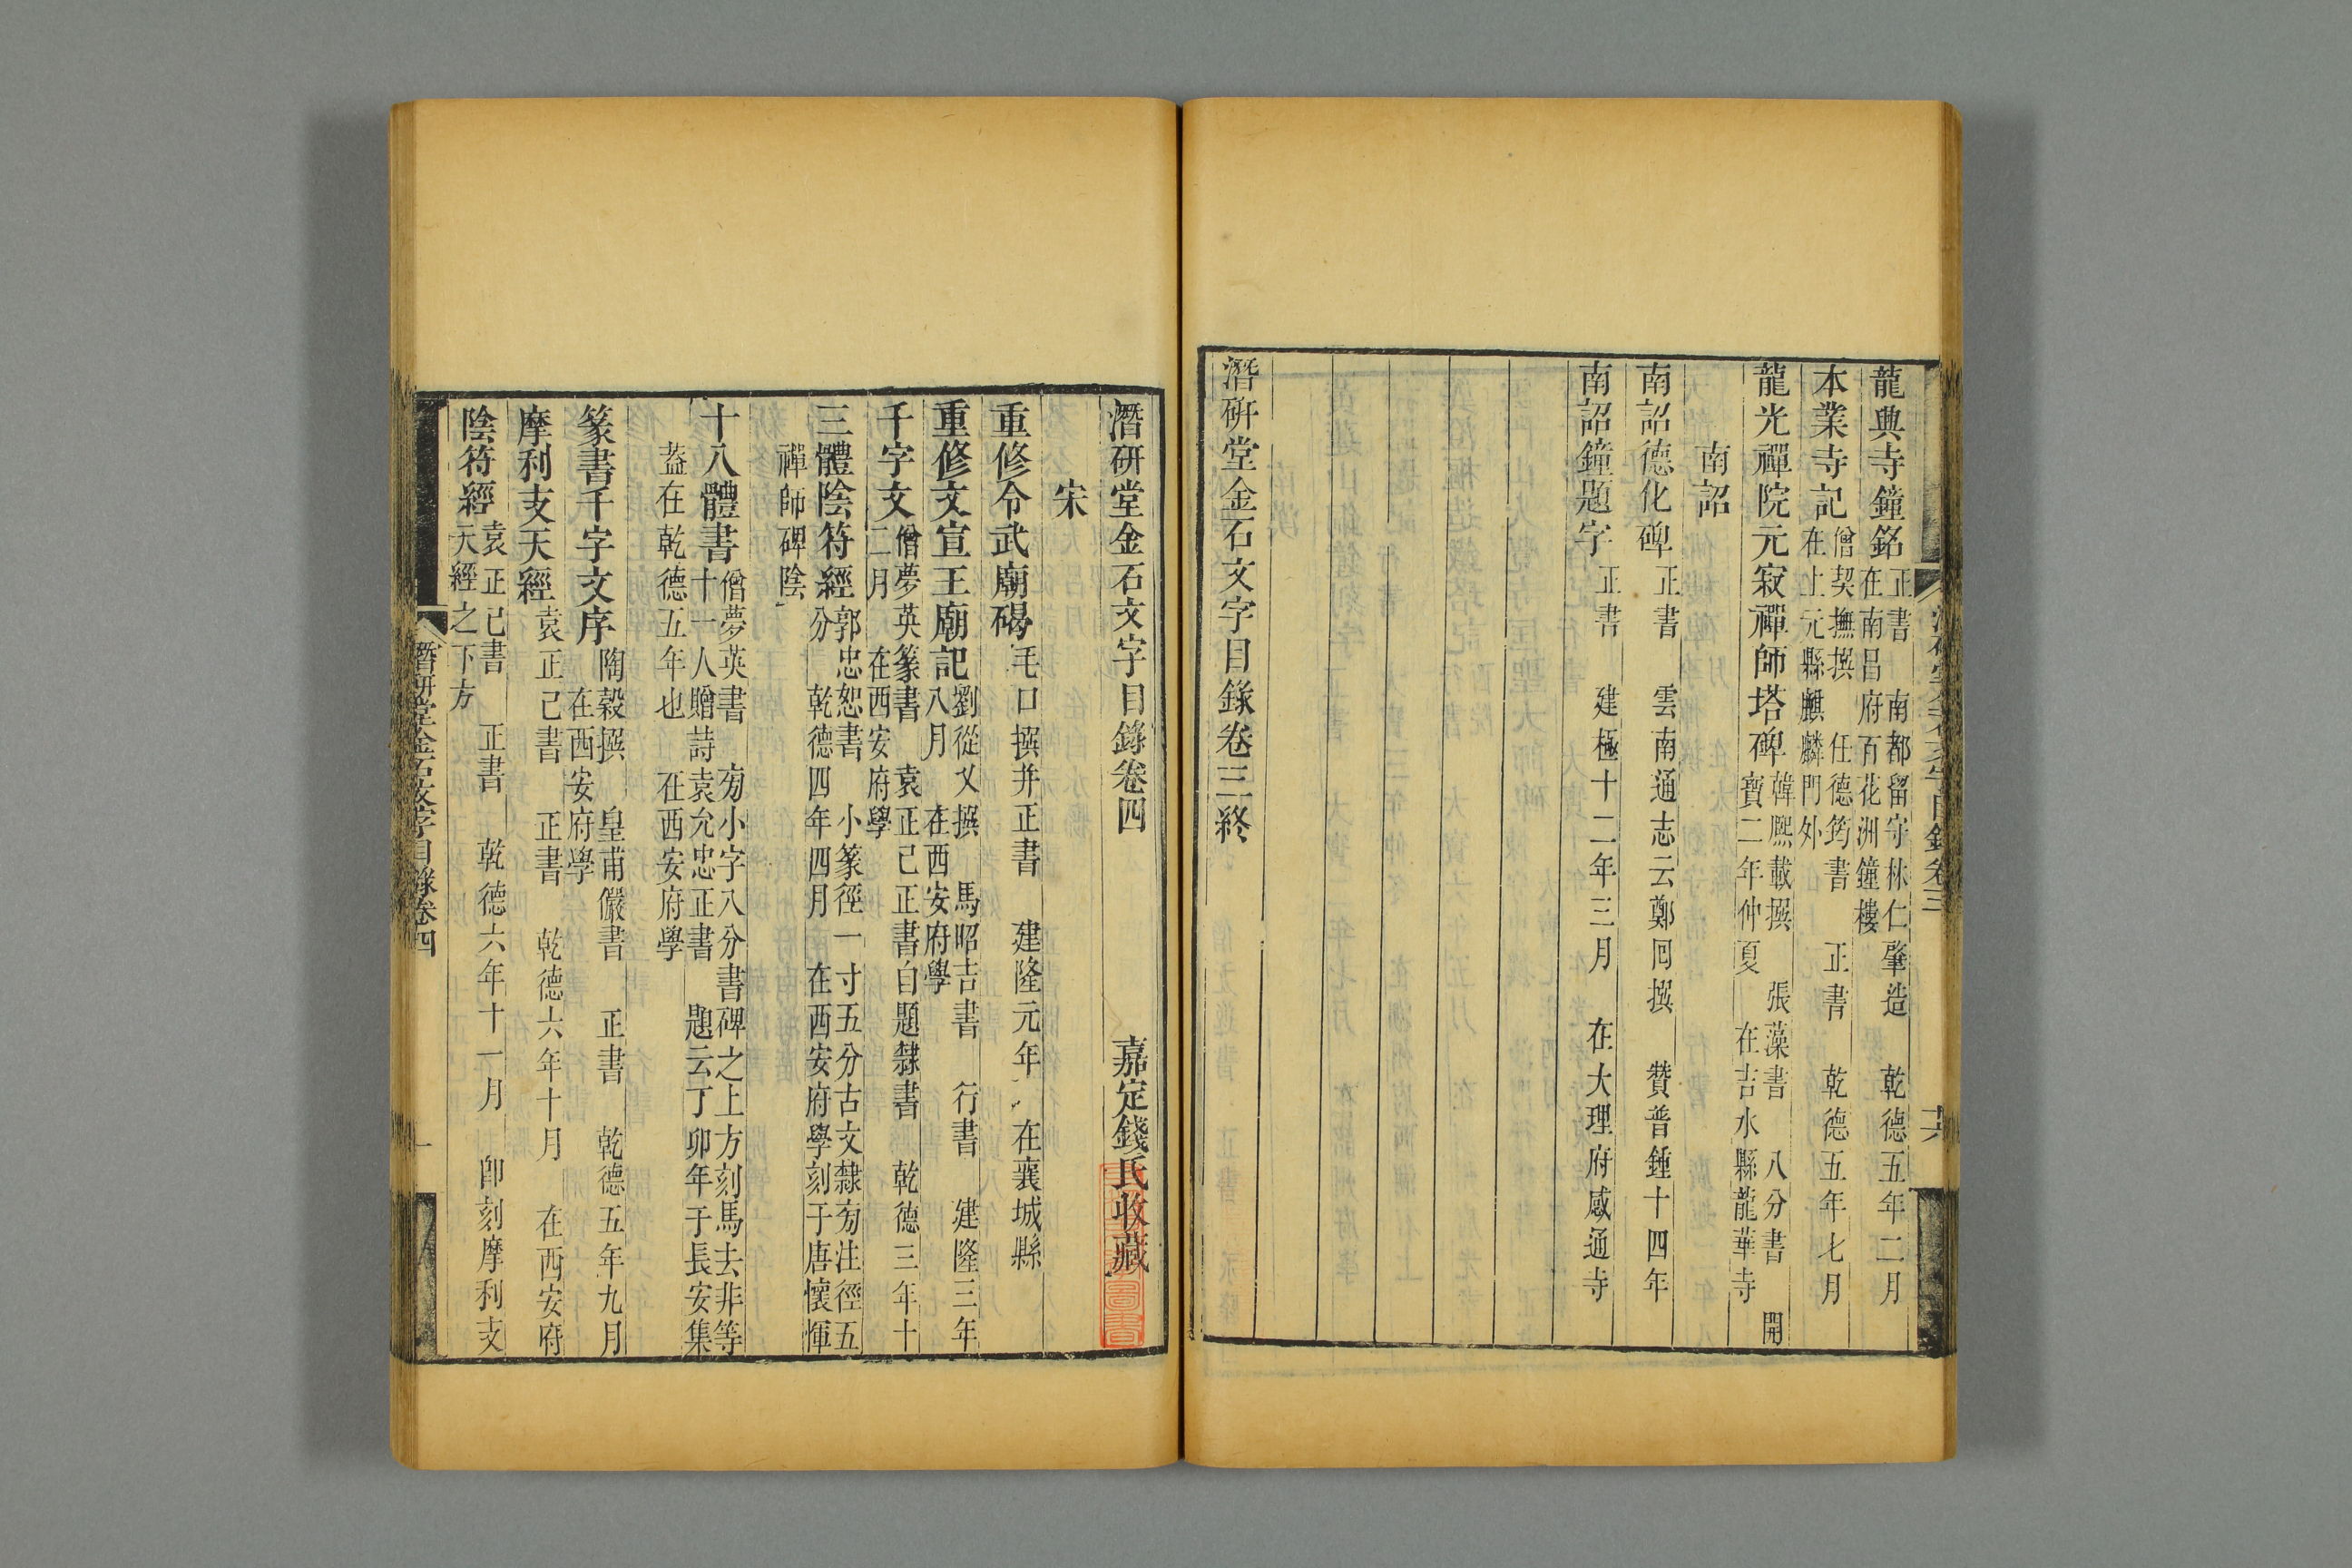 龍興寺鐘銘正書 南都留守林仁肇造 乾德五年二月
在南昌府百花洲鐘樓
本業寺記僧契撫撰 任德筠書 正書 乾德五年七月
在上元縣麒麟門外
龍光禪院元寂禪師塔碑韓熙載撰 張藻書 八分書 開
寶二年仲夏 在吉水縣龍華寺
南詔
南詔德化碑正書 雲南通志云鄭回撰 贊普鍾十四年
南詔鐘題字正書 建極十二年三月 在大理府感通寺
潛研堂金石文字目錄卷三終
潛研堂金石文字目錄卷四 嘉定錢氏收藏
宋
重修令武廟碣毛口撰并正書 建隆元年 在襄城縣
重修文宣王廟記劉從乂撰 馬昭吉書 行書 建隆三年
八月 在西安府學
千字文僧夢英篆書 袁正己正書自題隸書 乾德三年十
二月 在西安府學
三體陰符經郭忠恕書 小篆徑一寸五分古文隸㫄注徑五
分 乾德四年四月 在西安府學刻于唐懷惲
禪師碑陰
十八體書僧夢英書 㫄小字八分書碑之上方刻馬去非等
十一人贈詩袁允忠正書 題云丁卯年于長安集
葢在乾德五年也 在西安府學
篆書千字文序陶穀撰 皇甫儼書 正書 乾德五年九月
在西安府學
摩利支天經袁正己書 正書 乾德六年十月 在西安府
陰符經袁正己書 正書 乾德六年十一月 卽刻摩利支
天經之下方
潛研堂金石文字目錄卷四 一